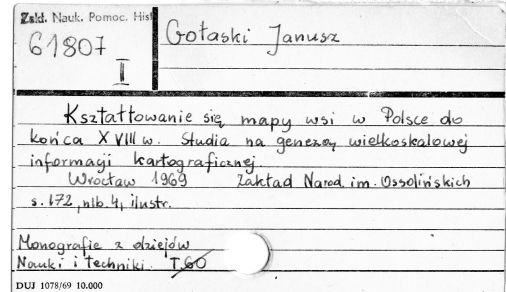 Zakł. Nauk. Pomoc. Hist
61807
I
Gołaski Janusz
Kształtowanie się mapy wsi w Polsce do
końca XVIII w. Studia na genezą wielkoskalowej
informacji kartograficznej.
Wrocław 1969 Zakład Narod. im. Ossolińskich
s. 172, nlb. 4, ilustr.
Monografie z dziejów
Nauki i techniki. T. 60
DUJ 1078/69 10.000